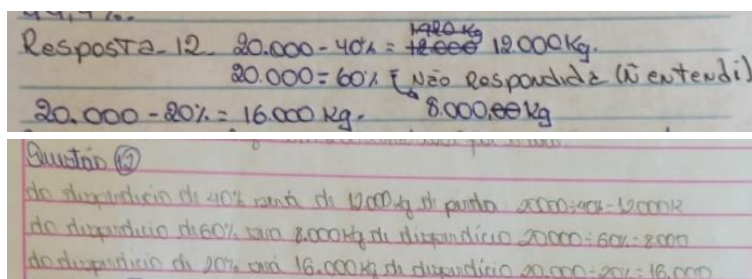 44,4%.
Resposta-12- 20.000-40% = 1920 Kg 12000 12.000Kg.
20.000=60% [Não Respondida (Ñ entendi)
20.000-20%= 16.000 Kg. 8.000,00 Kg
Questão 12
do disperdicio di 40% di 12.000 kg di perda 20000÷40%-12000k
do disperdicio di 60% 8.000 Kg di disperdício 20000÷60%-8.000
do disperdício di 20% 16.000 Kg di disperdício 20.000-20%-16.000